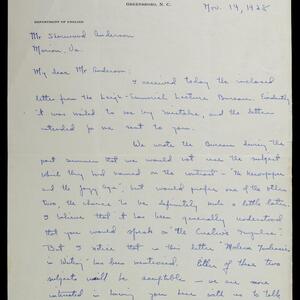 GREENSBORO, N. C.
DEPARTMENT OF ENGLISH
Nov. 19, 1928
Mr Sherwood Anderson
Marion, Va.
My dear Mr Anderson:
I received today the inclosed
letter from the Leigh-Emmerich Lecture Bureau. Evidently
it was mailed to me by mistake, and the letter
intended for me sent to you.
We wrote the Bureau during the
past summer that we would not use the subject
which they had named on the contract - "The Newspaper
and the Jazz Age", but would prefer one of the others
two, the choice to be definitely made a little later.
I believe that it has been generally understood
that you would speak on "The Creative Impulse".
But I notice that in this letter "Modern Tendencies
in Writing" has been mentioned. Either of these two
subjects will be acceptable - we are more
interested in having you here with us to talk